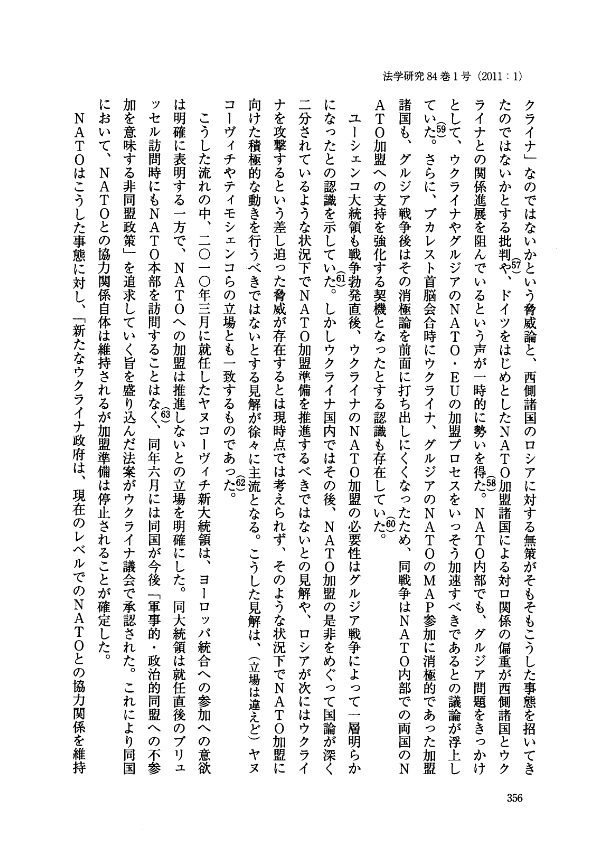 法学研究 84 巻 1 号（2011：1）
クライナ」なのではないかという脅威論と、西側諸国のロシアに対する無策がそもそもこうした事態を招いてき
たのではないかとする批判(57)や、ドイツをはじめとしたNATO加盟諸国による対ロ関係の偏重が西側諸国とウク
ライナとの関係進展を阻んでいるという声が一時的に勢いを得た(58)。NATO内部でも、グルジア問題をきっかけ
として、ウクライナやグルジアのNATO・EUの加盟プロセスをいっそう加速すべきであるとの議論が浮上し
ていた(59)。さらに、ブカレスト首脳会合時にウクライナ、グルジアのNATOのMAP参加に消極的であった加盟
諸国も、グルジア戦争後はその消極論を前面に打ち出しにくくなったため、同戦争はNATO内部での両国のN
ATO加盟への支持を強化する契機となったとする認識も存在していた(60)。
ユーシェンコ大統領も戦争勃発直後、ウクライナのNATO加盟の必要性はグルジア戦争によって一層明らか
になったとの認識を示していた(61)。しかしウクライナ国内ではその後、NATO加盟の是非をめぐって国論が深く
二分されているような状況下でNATO加盟準備を推進するべきではないとの見解や、ロシアが次にはウクライ
ナを攻撃するという差し迫った脅威が存在するとは現時点では考えられず、そのような状況下でNATO加盟に
向けた積極的な動きを行うべきではないとする見解が徐々に主流となる。こうした見解は、（立場は違えど）ヤヌ
コーヴィチやティモシェンコらの立場とも一致するものであった(62)。
こうした流れの中、二〇一〇年三月に就任したヤヌコーヴィチ新大統領は、ヨーロッパ統合への参加への意欲
は明確に表明する一方で、NATOへの加盟は推進しないとの立場を明確にした。同大統領は就任直後のブリュ
ッセル訪問時にもNATO本部を訪問することはなく(63)、同年六月には同国が今後「軍事的・政治的同盟への不参
加を意味する非同盟政策」を追求していく旨を盛り込んだ法案がウクライナ議会で承認された。これにより同国
において、NATOとの協力関係自体は維持されるが加盟準備は停止されることが確定した。
NATOはこうした事態に対し、「新たなウクライナ政府は、現在のレベルでのNATOとの協力関係を維持
356